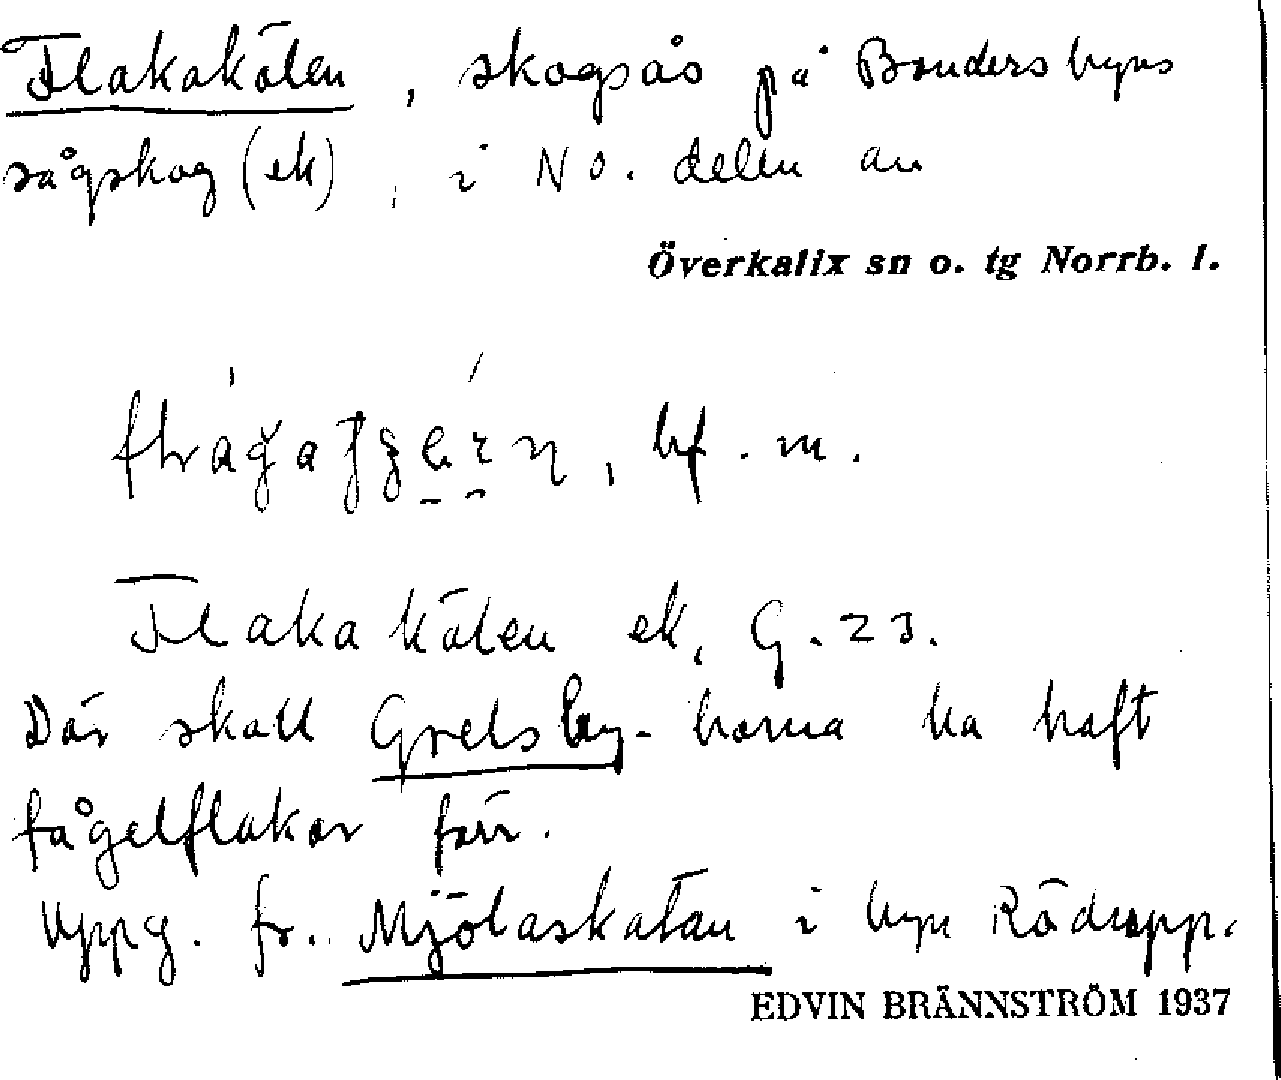 Flakakölen, skogsås på Bondersbyns
sågskog (ek), i NO. delen av
Överkalix sn o. tg Norrb. l.
bf. m.
Flakakölen ek, G. 23.
Där skall Grelsby-borna ha haft
fågelflakar förr.
Uppg. fr. Mjölaskatan i byn Rödupp.
EDVIN BRÄNNSTRÖM 1937